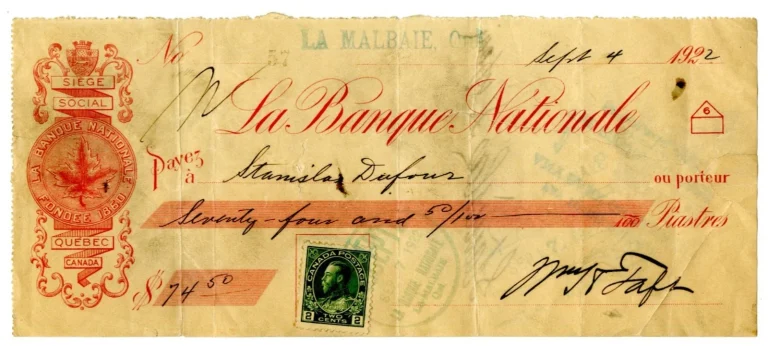 No 57 LA MALBAIE, Sept 4 1922
SIÈGE
SOCIAL
La Banque Nationale
6
LA BANQUE NATIONALE
FONDÉE 1860
Payez
à Stanislas Dufour ou porteur
Seventy-four and 50/100 100 Piastres
QUEBEC
CANADA
$ 74 50
CANADA POSTAGE
2 TWO CENTS 2
Wm H Taft